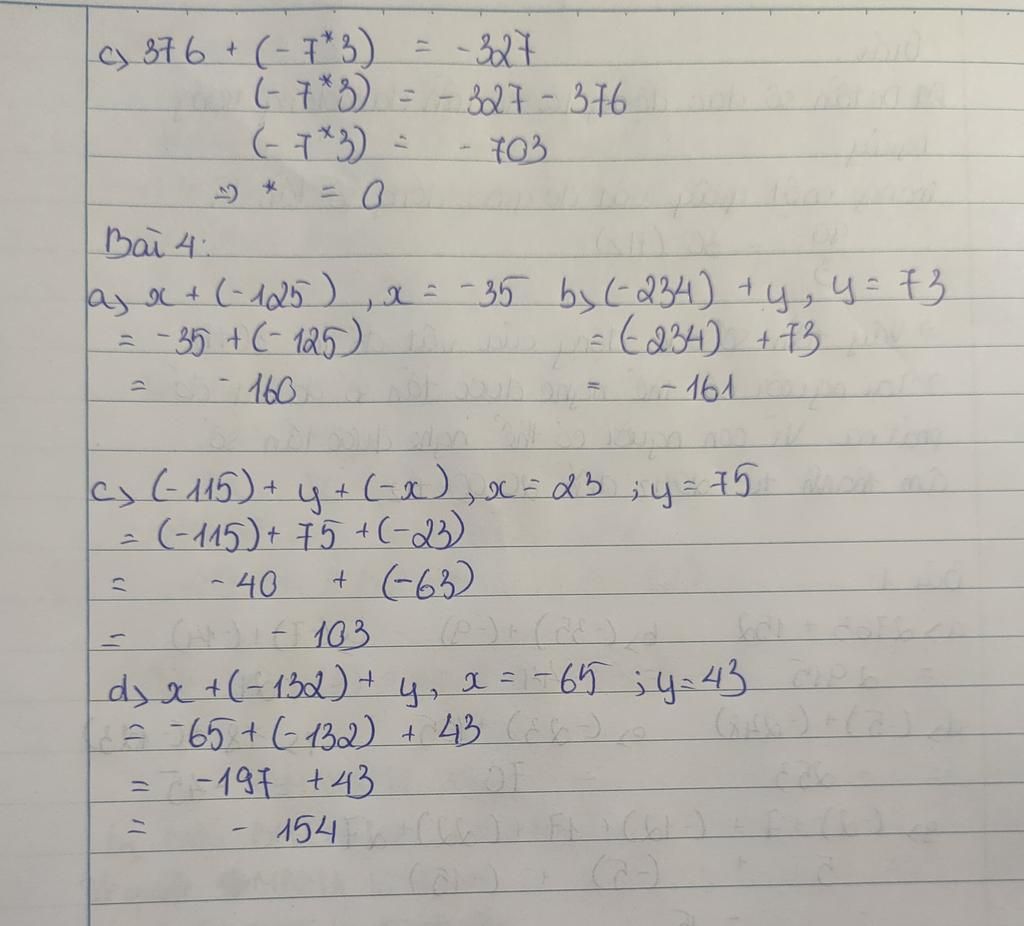 c) 376 + (- 7*3) = - 327
(- 7*3) = - 327 - 376
(- 7*3) = - 703
=> * = 0
Bài 4:
a) x + (-125), x = -35 b) (-234) + y, y = 73
= -35 + (-125) = (-234) + 73
= - 160 = - 161
c) (-115) + y + (-x), x = 23 ; y = 75
= (-115) + 75 + (-23)
= - 40 + (-63)
= - 103
d) x + (-132) + y, x = -65 ; y = 43
= -65 + (-132) + 43
= -197 + 43
= - 154